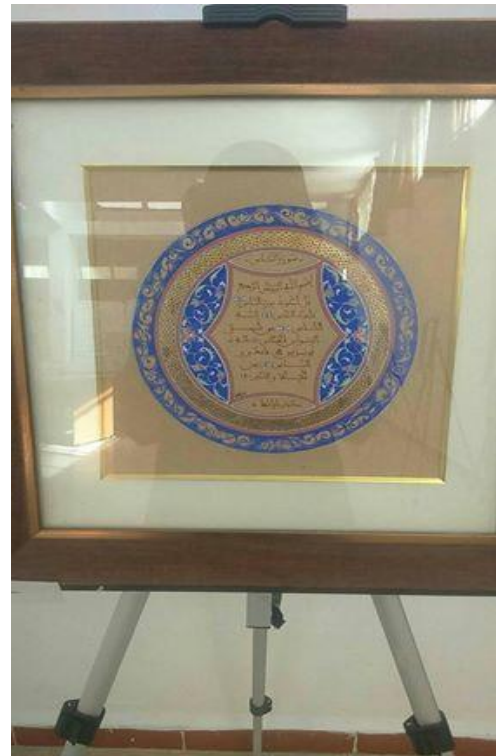 سورة الناس
بسم الله الرحمن الرحيم
قل أعوذ برب الناس
ملك الناس إله
الناس من شر
الوسواس الخناس الذي
يوسوس في صدور
الناس من
الجنة والناس